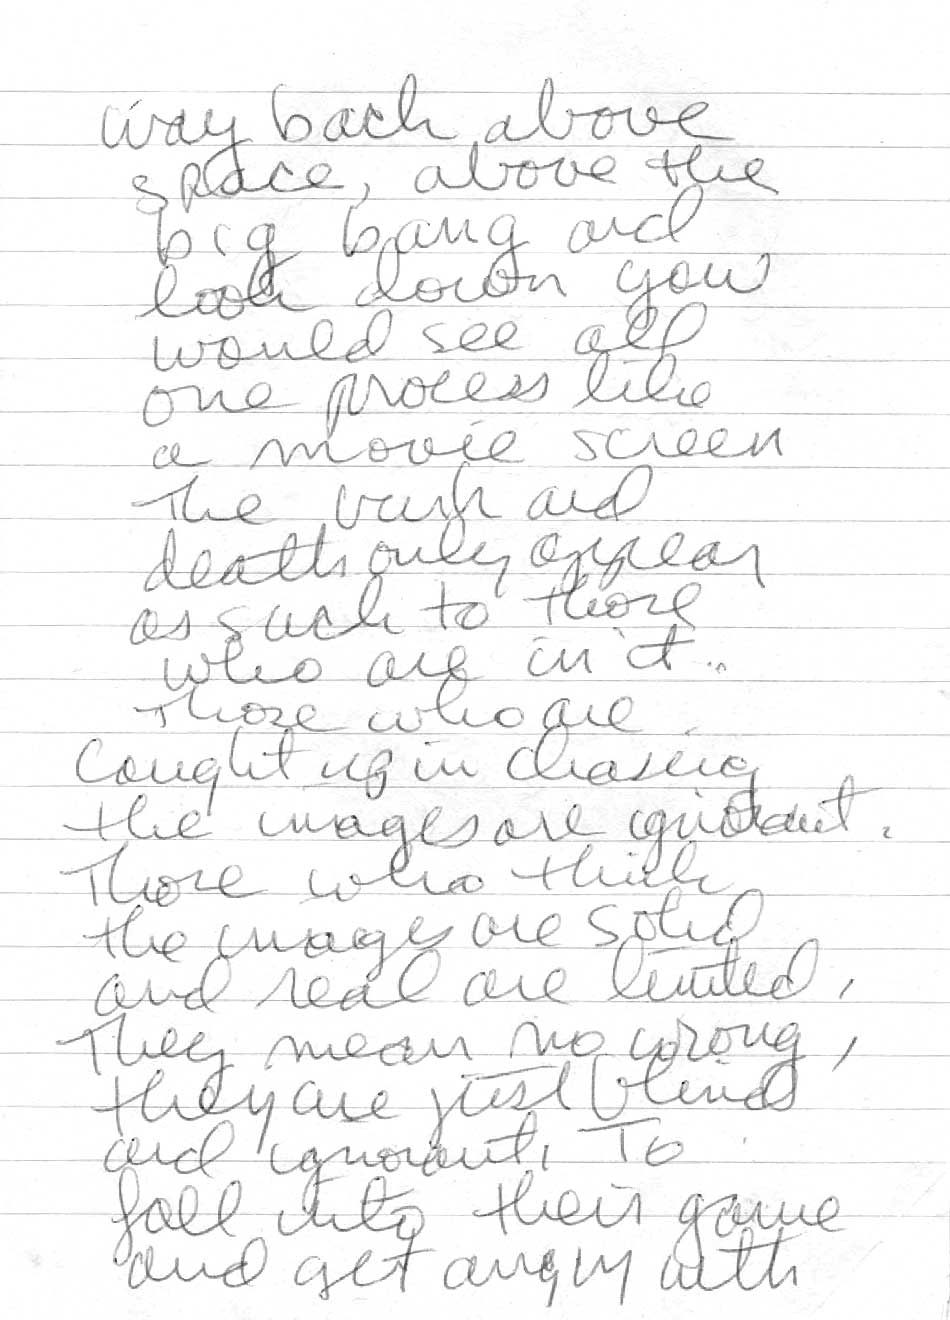 way back above
space, above the
big bang and
look down you
would see all
one process like
a movie screen
The birth and
death only appear
as such to those
who are in it..
Those who are
Caught up in chasing
the images are ignorant.
Those who think
the images are solid
and real are limited,
They mean no wrong,
they are just blind
and ignorant. To
fall into their game
and get angry with